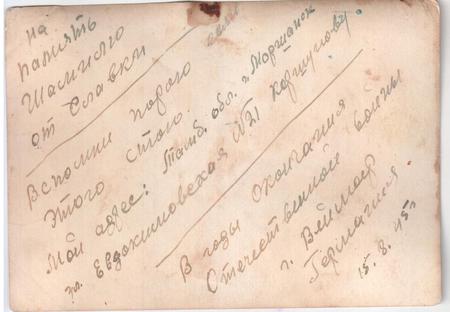 На
память
Шамилю
от Славки
Вспомни порою
Этого
Мой адрес: Тамб. обл. г. Моршанск
ул. Евдокимовская № 21 Коршунову.
В годы окончания
Отечественной войны
г. Веймар
Германия
15.8.45г